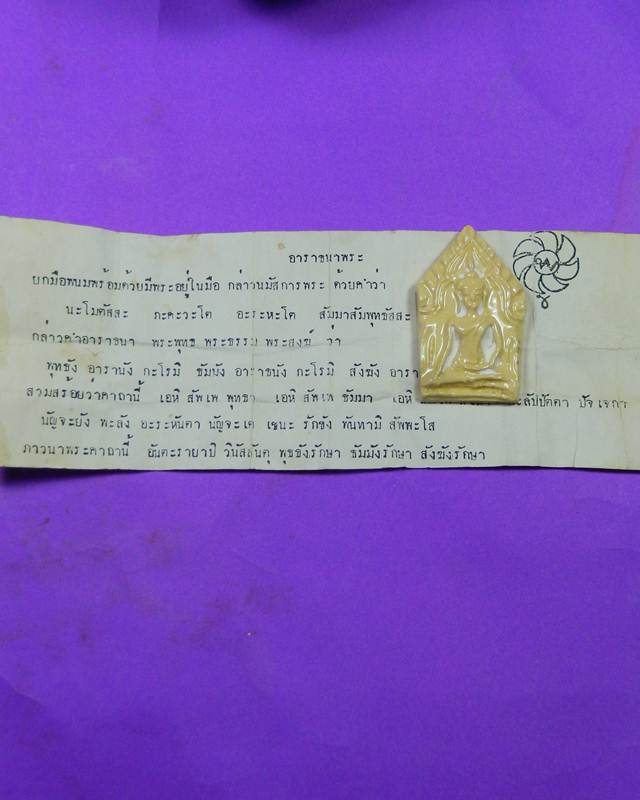 อาราธนาพระ
ยกมือพนมพร้อมด้วยมีพระอยู่ในมือ กล่าวนมัสการพระ ด้วยคำว่า
นะโมตัสสะ ภะคะวะโต อะระหะโต สัมมาสัมพุทธัสสะ
กล่าวคำอาราธนา พระพุทธ พระธรรม พระสงฆ์ ว่า
พุทธัง อาราธนัง กะโรมิ ธัมมัง อาราธนัง กะโรมิ สังฆัง อารา
สวมสร้อยว่าคาถานี้ เอหิ สัพเพ พุทธา เอหิ สัพเพ ธัมมา เอหิ ะลัปปัตตา ปัจเจกา
นัญจะยัง พะลัง อะระหันตา นัญจะเต เชนะ รักขัง พันทามิ สัพพะโส
ภาวนาพระคาถานี้ อันตะรายาปิ วินัสสันตุ พุทธังรักษา ธัมมังรักษา สังฆังรักษา